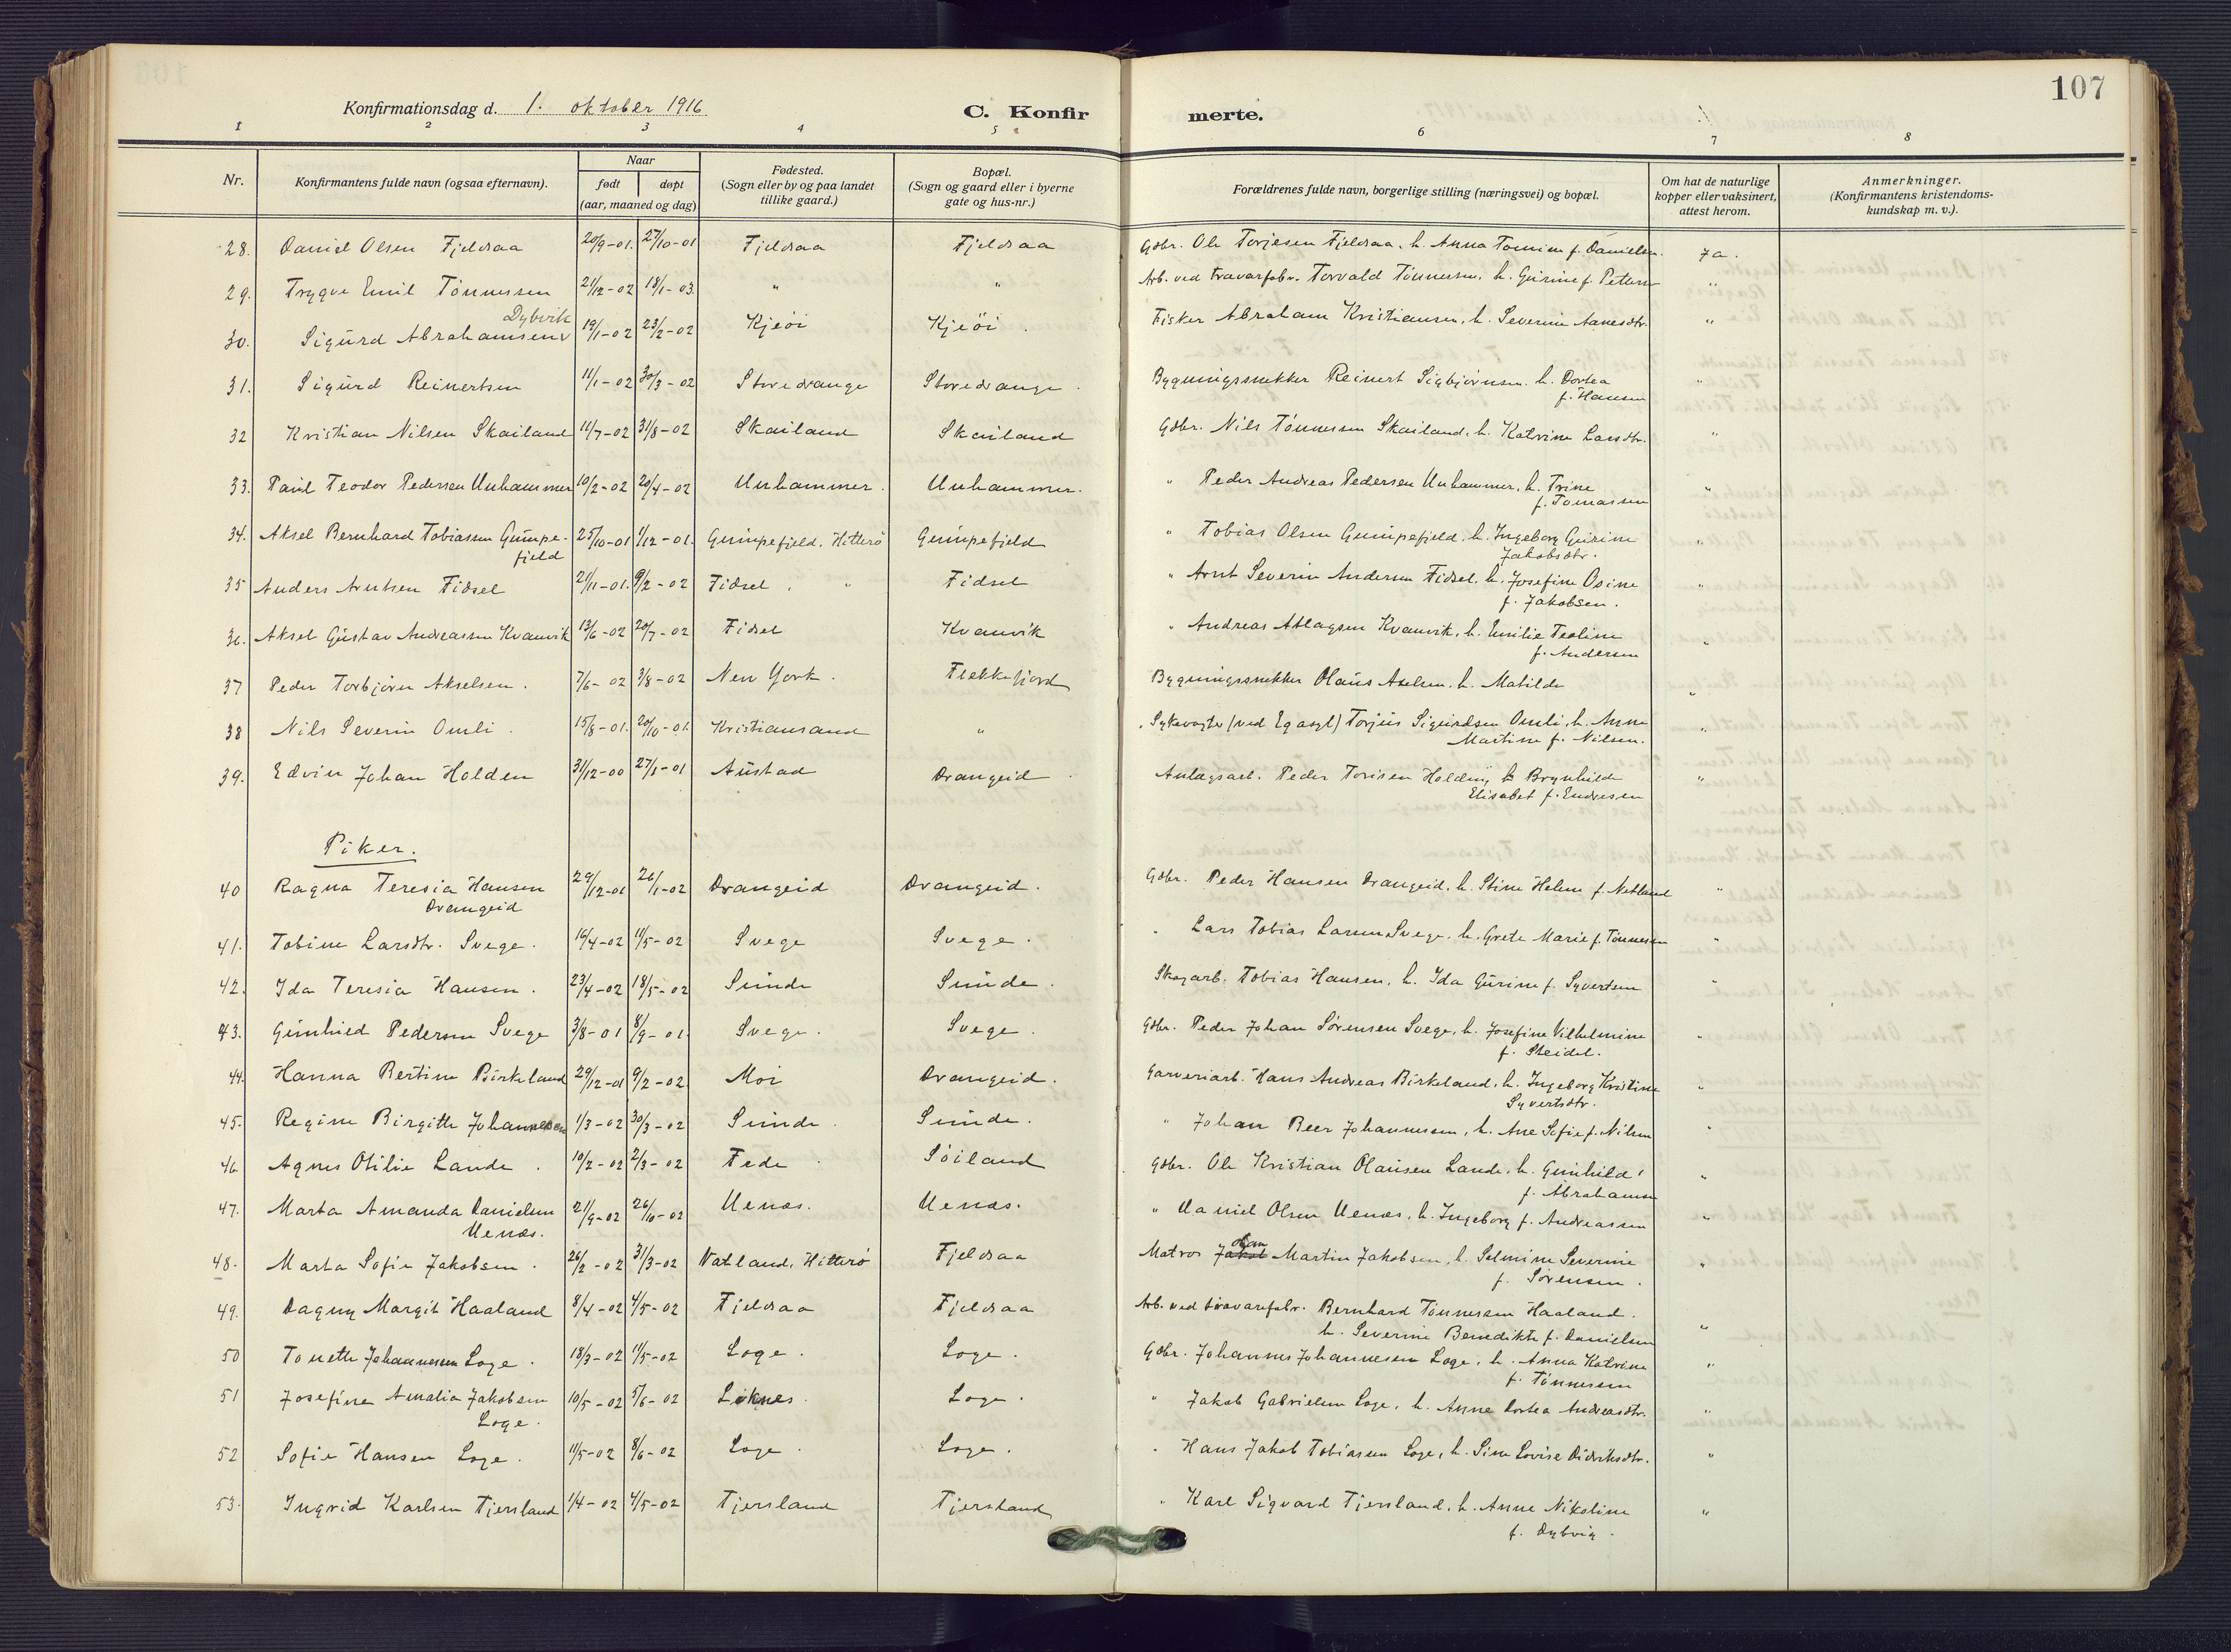 107
Konfirmationsdag d. 1. oktober 1916
C. Konfirmerte.
1 2 3 4 5 6 7 8
Nr.
Konfirmantens fulde navn (ogsaa efternavn).
Naar
født døpt
(aar, maaned og dag)
Fødested.
(Sogn eller by og paa landet
tillike gaard.)
Bopæl.
(Sogn og gaard eller i byerne
gate og hus-nr.)
Forældrenes fulde navn, borgerlige stilling (næringsvei) og bopæl.
Om hat de naturlige
kopper eller vaksinert,
attest herom.
Anmerkninger.
(Konfirmantens kristendoms-
kundskap m. v.).
28. Daniel Olsen Fjeldsaa 20/9-01. 27/10-01 Fjeldsaa Fjeldsaa Gdbr. Ole Torjesen Fjeldsaa, h. Anna Tomine f. Danielsen. Ja.
29. Trygve Emil Tönnessen 21/12-02 18/1-03. " " Arb. ved travarfabr. Torvald Tönnesen, h. Gurine f. Pettersen "
Dybvik
30. Sigurd Abrahamsen 19/1-02 23/2-02 Kjeöi Kjeöi. Fisker Abraham Kristiansen, h. Severine Aanesdtr. "
31. Sigurd Reinertsen 11/1-02 30/3-02 Storedrange Storedrange. Bygningssnekker Reinert Sigbjörnsen. h. Dortea "
f. Hansen
32 Kristian Nilsen Skailand 11/7-02 31/8-02 Skailand Skailand Gdbr. Nils Tönnessen Skailand, h. Katrine Larsdtr. "
33. Paul Teodor Pedersen Unhammer 10/2-02 20/4-02 Unhammer. Unhammer. " Peder Andreas Pedersen Unhammer, h. Trine "
f. Tomassen
34. Aksel Bernhard Tobiassen Gumpe- 25/10-01 1/12-01. Gumpefjeld, Hitterö Gumpefjeld " Tobias Olsen Gumpefjeld, h. Ingeborg Gurine "
fjeld Jakobsdtr.
35 Anders Arntsen Fidsel 21/11-01. 9/2-02 Fidsel. " Fidsel " Arnt Severin Andersen Fidsel, h. Josefine Osine "
f. Jakobsen.
36. Aksel Gustav Andreassen Kvanvik 13/6-02 20/7-02 Fidsel Kvanvik " Andreas Atlagsen Kvanvik, h. Emilie Teoline "
f. Andersen
37 Peder Torbjörn Akselsen. 7/6-02 3/8-02 New York. Flekkefjord Bygningssnekker Olaus Axelsen. h. Matilde "
38 Nils Severin Omli. 15/8-01. 20/10-01. Kristiansand " Sykevogter (ved Eg asyl) Torjus Sigurdsen Omli, h. Anne "
Martine f. Nilsen.
39. Edvin Johan Holden 31/12-00 27/1-01 Austad Drangeid. Anlagsarb. Peder Torisen Holden, h Brynhilde "
Elisabet f. Endresen
Piker.
40 Ragna Teresia Hansen 29/12-01 26/1-02 Drangeid Drangeid. Gdbr. Peder Hansen Drangeid, h. Stine Helene f. Netland "
Drangeid
41. Tobine Larsdtr. Svege. 16/4-02 11/5-02 Svege Svege. " Lars Tobias Larsen Svege, h. Grete Marie f. Tönnesen "
42. Ida Teresia Hansen. 23/4-02 18/5-02 Sunde Sunde. Skogarb. Tobias Hansen, h. Ida Gurine f. Syvertsen "
43. Gunhild Pedersen Svege 3/8-01 8/9-01. Svege. Svege. Gdbr. Peder Johan Sörensen Svege, h. Josefine Vilhelmine "
f. Steidel.
44. Hanna Bertine Birkeland 29/12-01 9/2-02. Moi Drangeid. Garveriarb. Hans Andreas Birkeland, h. Ingeborg Kristine "
Syvertsdtr.
45. Regine Birgitte Johannessen 1/3-02 30/3-02 Sunde. Sunde. " Johan Beer Johannessen, h. Ane Sofie f. Nilsen "
46 Agnes Otilie Lande. 10/2-02 2/3-02 Fede. Söiland Gdbr. Ole Kristian Olausen Lande, h. Gunhild "
f. Abrahamsen
47. Marta Amanda Danielsen 21/9-02 26/10-02 Uenæs. Uenæs. " Daniel Olsen Uenæs, h. Ingeborg f. Andreassen "
Uenæs.
48. Marta Sofie Jakobsen. 26/2-02 31/3-02 Natland, Hitterö Fjeldsaa Matros Johan Martin Jakobsen, h. Selmine Severine "
f. Sörensen.
49. Dagny Margit Haaland 8/4-02 4/5-02 Fjeldsaa Fjeldsaa Arb. ved travarefabr. Bernhard Tönnessen Haaland.
h. Severine Benedikte f. Danielsen "
50 Tonette Johannessen Loge. 18/3-02 11/5-02 Loge. Loge. Gdbr. Johannes Johannesen Loge, h. Anna Katrine "
f. Tönnessen
51 Josefine Amalia Jakobsen 10/5-02 5/6-02 Löknes. Loge. " Jakob Gabrielsen Loge, h. Anne Dortea Andreasdtr. "
Loge.
52 Sofie Hansen Loge. 11/5-02 8/6-02 Loge. Loge. " Hans Jakob Tobiasen Loge, h. Sine Lovise Didriksdtr. "
53. Ingrid Karlsen Tjersland 1/4-02 4/5-02 Tjersland Tjersland " Karl Sigvard Tjersland, h. Anne Nikoline "
f. Dybvig.